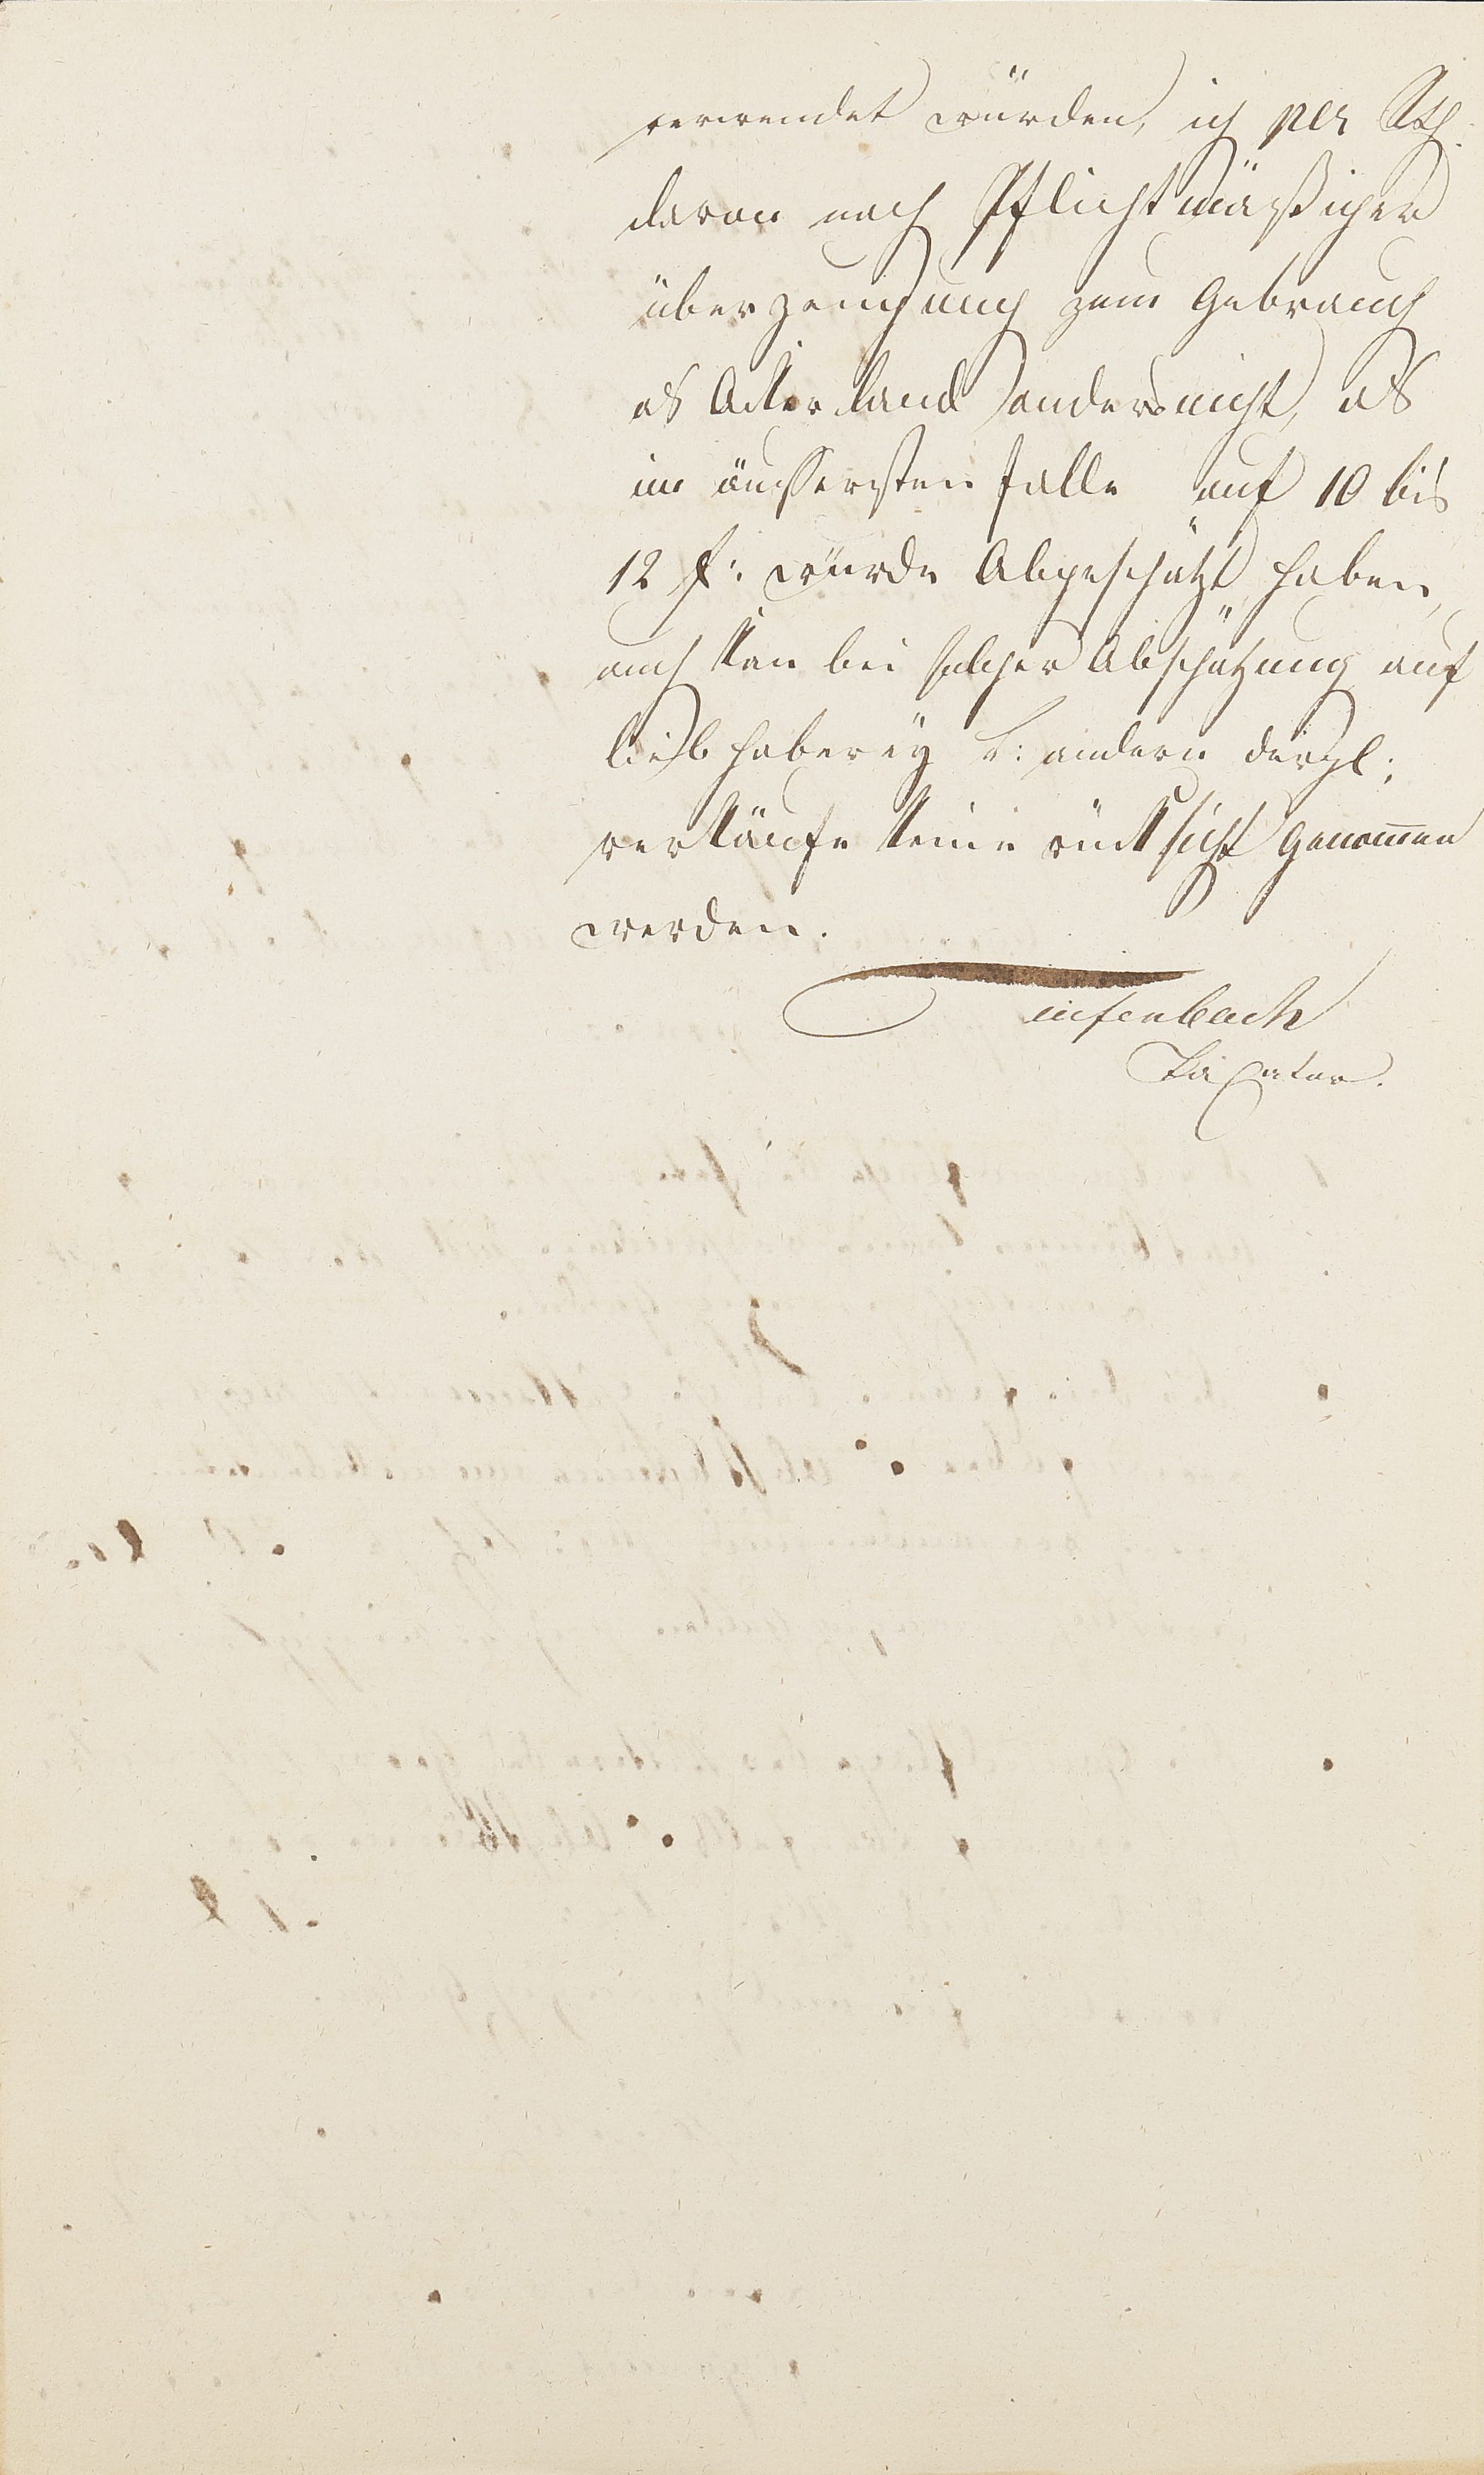 verwendet würden, ich per Rth.
davon nach Pflichtmäßiger
überzeugung zum Gebrauch
als Ackerland anders nicht, als
im äussersten falle auf 10 bis
12 f: würde Abgeschätzt haben,
auch kan bei solcher Abschätzung auf
liebhaberey &: andern dergl:
verkäufe keine rücksicht Genom̅en
werden.
Tiefenbach
Taxator.